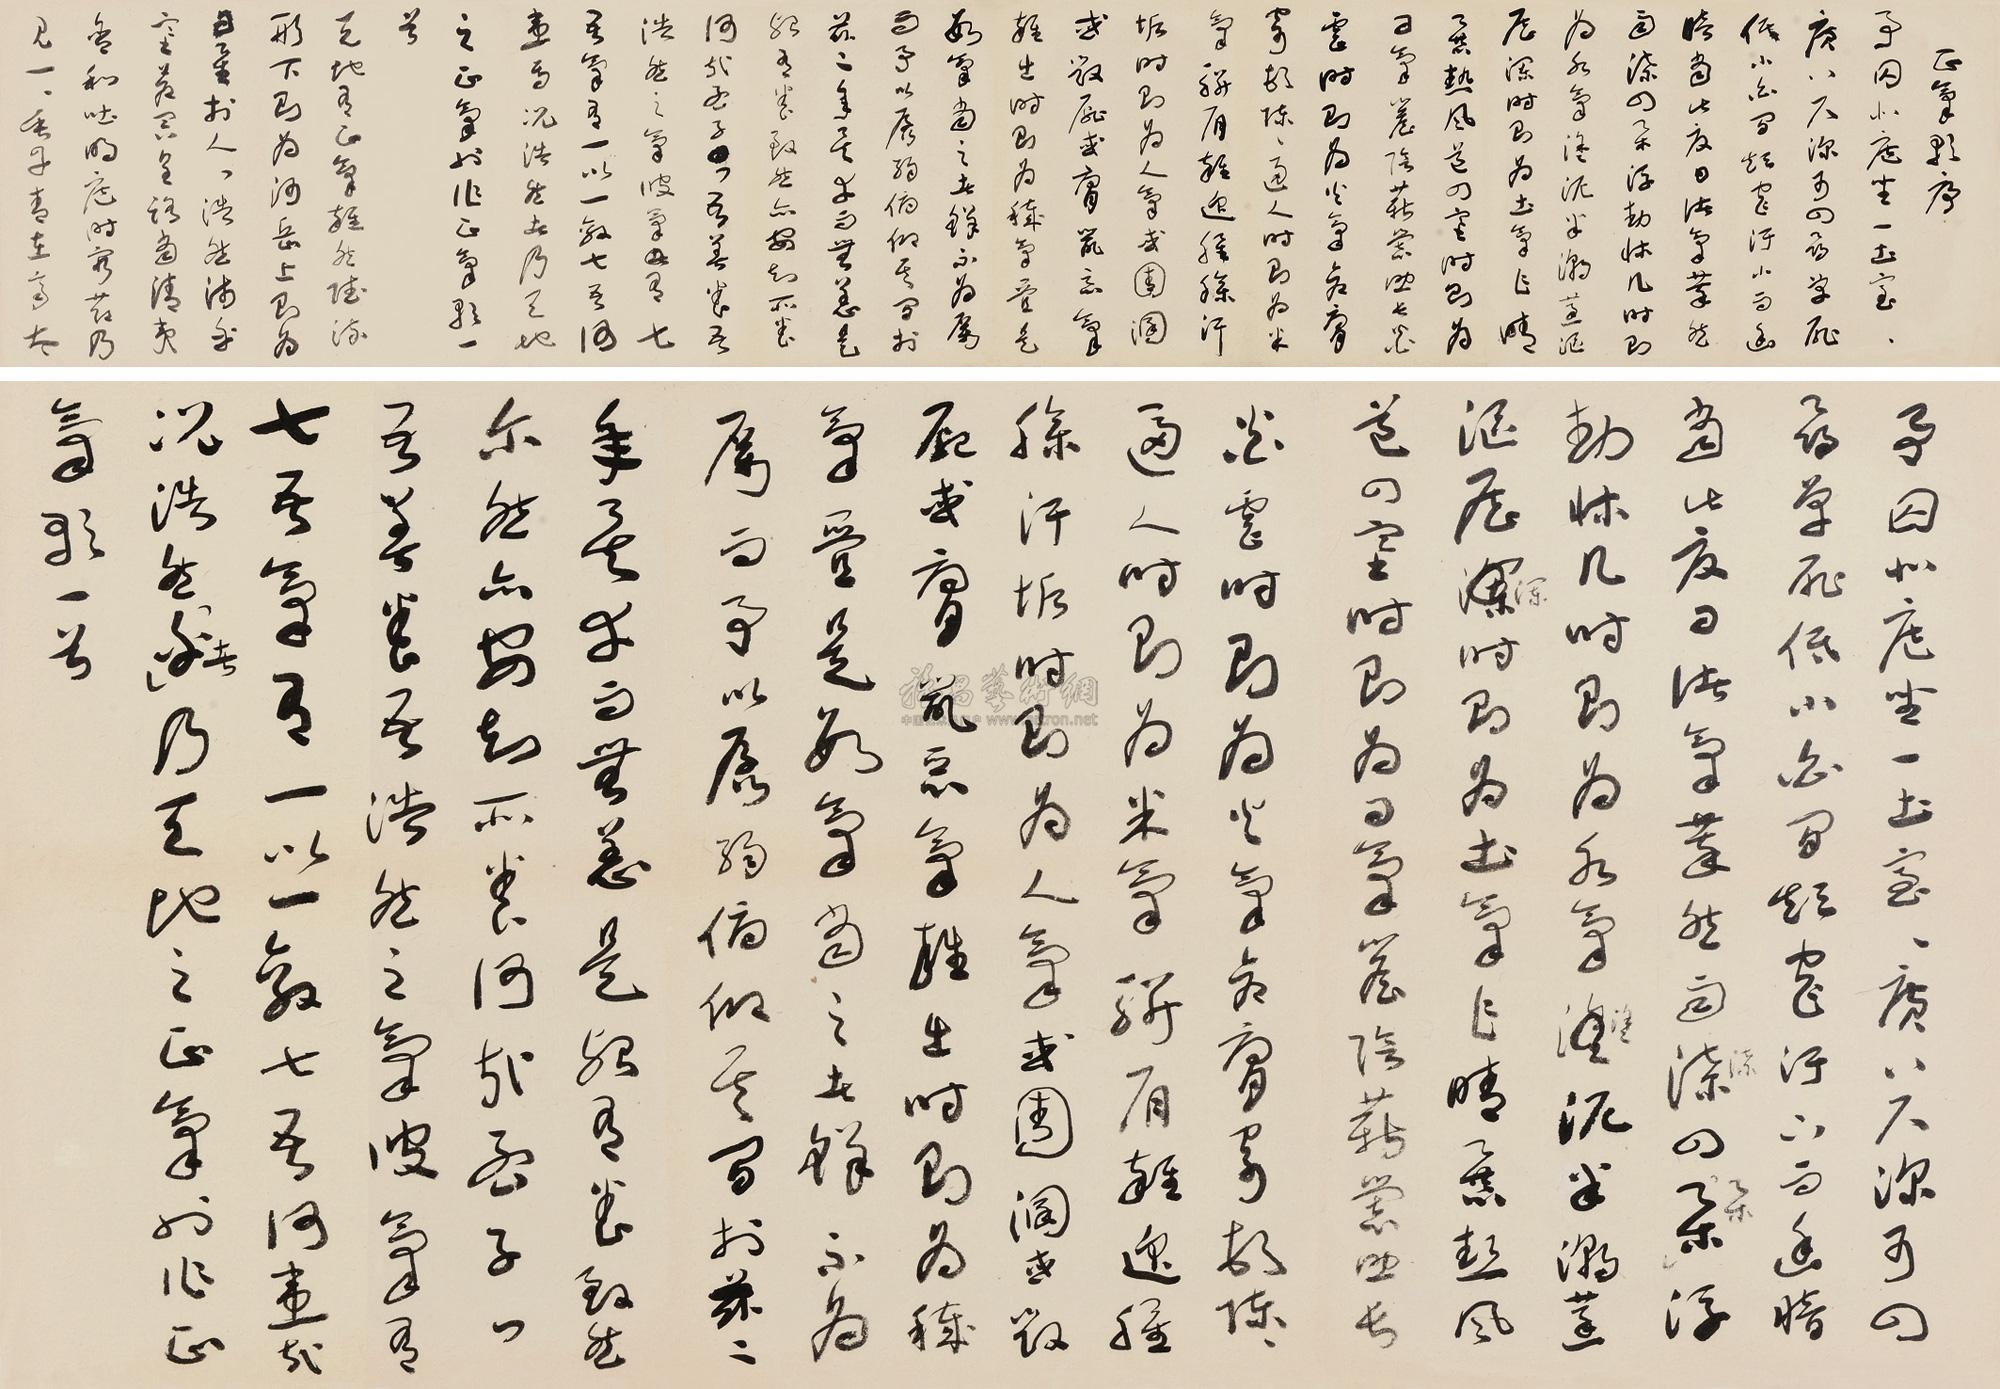 正氣歌序
予囚北庭坐一土室、
廣八尺深可四尋單扉
低小白間短窄汙下而幽
暗當此夏日諸氣萃然
雨潦四集浮動床几時則
為水氣塗泥半潮蒸漚
歷瀾時則為土氣乍晴
暴熱風道四塞時則為
日氣簷陰薪爨助長炎
虐時則為火氣倉腐
寄頓陳、逼人時則為米
氣駢肩雜遝腥臊汗
垢時則為人氣或圊溷
或毀屍或腐鼠惡氣
雜出時則為穢氣疊是
數氣當之者鮮不為厲
而予以孱弱俯仰其間於
茲二年矣幸而無恙是
殆有養致然亦安知所養
何哉孟子曰吾善養吾
浩然之氣彼氣有七
吾氣有一以一敵七吾何
患焉況浩然者乃天地
之正氣也作正氣歌一
首
天地有正氣雜然賦流
形下則為河嶽上則為
日星於人曰浩然沛乎
塞蒼冥皇路當清夷
含和吐明庭時窮節乃
見一、垂丹青在齊太
予囚北庭坐一土室、廣八尺深可四
尋單扉低小白間短窄汙下而幽暗
當此夏日諸氣萃然雨潦潦四集集浮
動床几時則為水氣塗塗泥半潮蒸
漚歷瀾瀾時則為土氣乍晴暴熱風
道四塞時則為日氣簷陰薪爨助長
炎虐時則為火氣倉腐寄頓陳、
逼人時則為米氣駢肩雜遝腥
臊汗垢時則為人氣或圊溷或毀
屍或腐鼠惡氣雜出時則為穢
氣疊是數氣當之者鮮不為
厲而予以孱弱俯仰其間於茲二
年矣幸而無恙是殆有養致然
尔然亦安知所養何哉孟子曰
吾善養吾浩然之氣彼氣有
七吾氣有一以一敵七吾何患哉
況浩然者乃天地之正氣也作正
氣歌一首
雅昌藝術網
www.artron.net